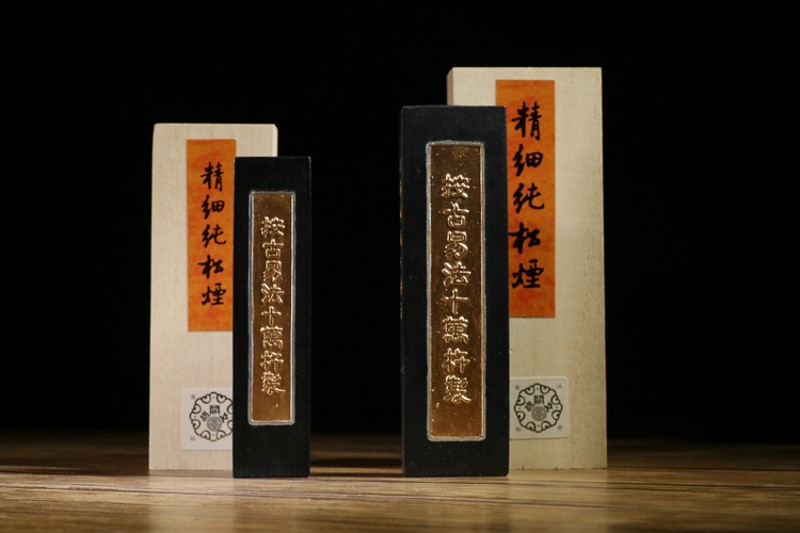 精细纯松煙
按古易法十萬杵製
按古易法十萬杵製
精细纯松煙